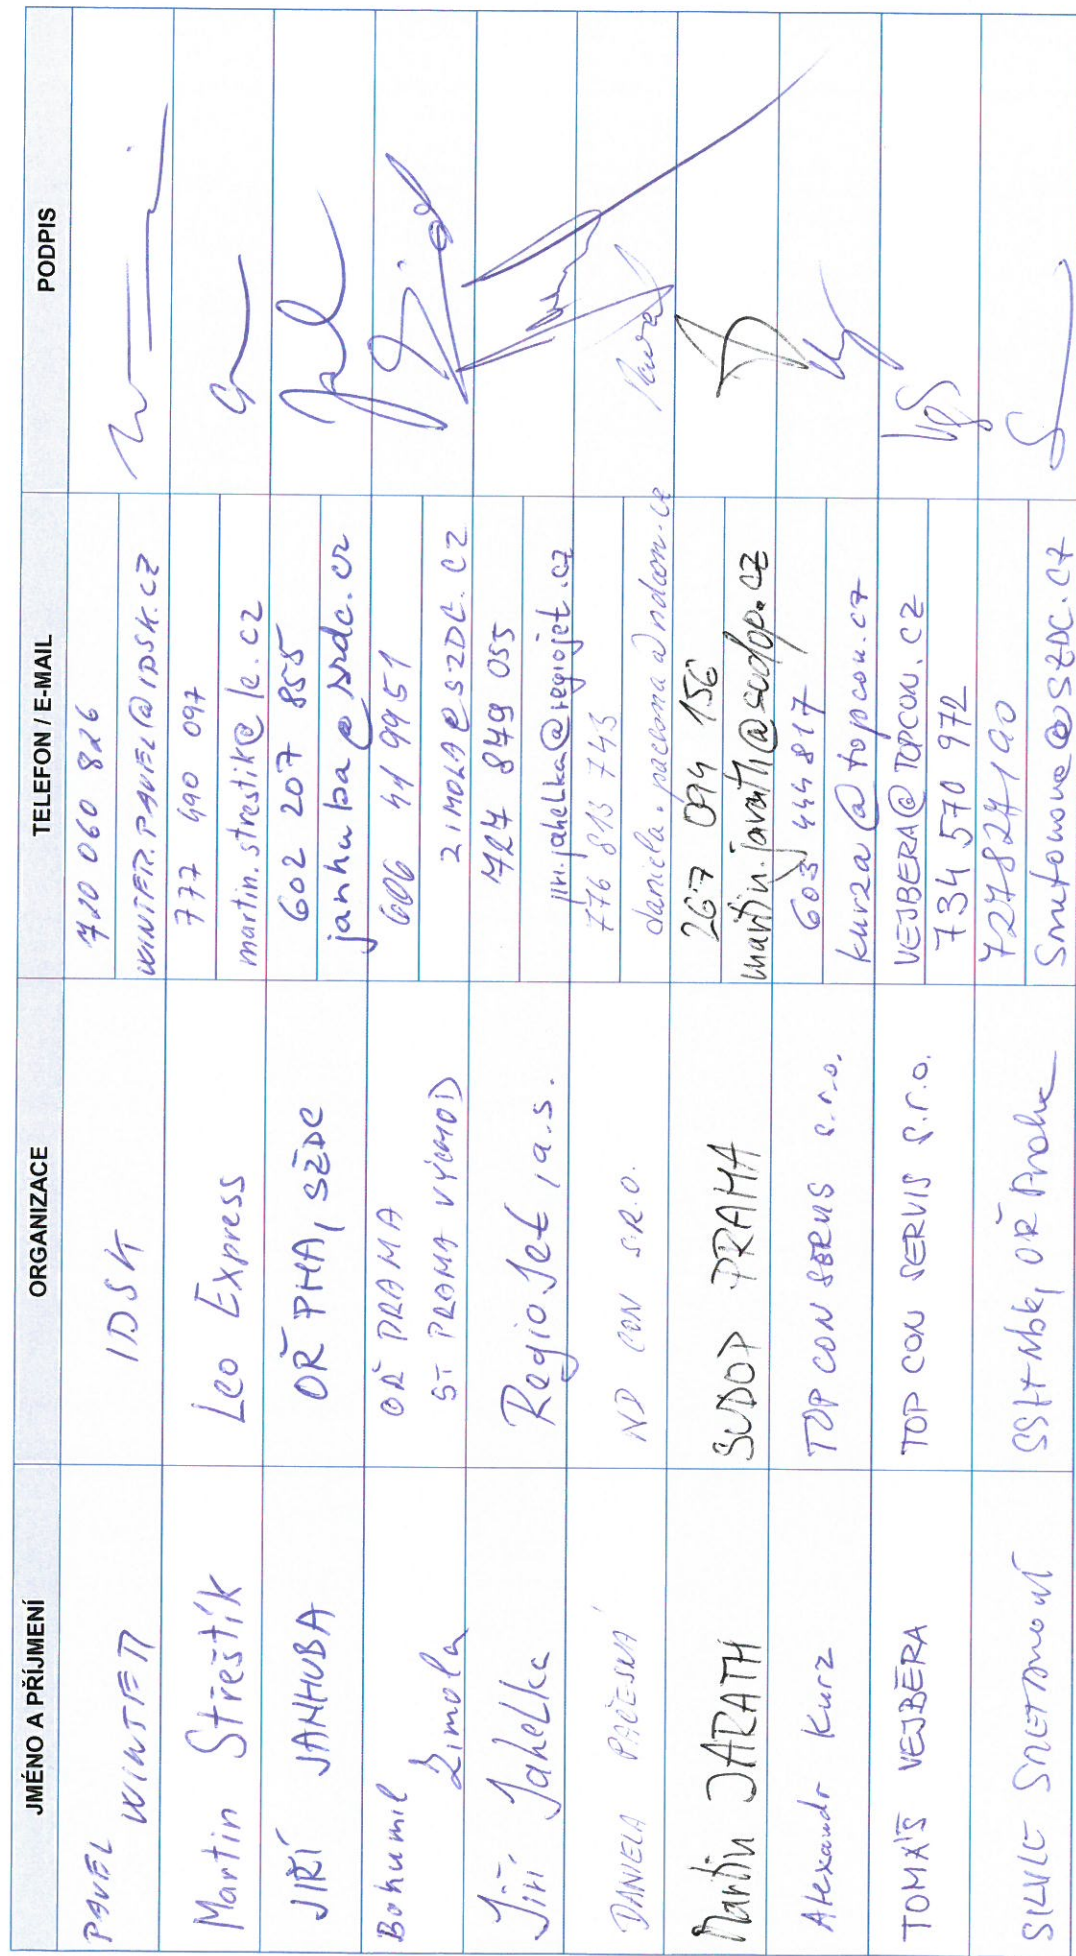 JMÉNO A PŘÍJMENÍ ORGANIZACE TELEFON / E-MAIL PODPIS
PAVEL WINTER
IDSK
720 060 826
WINTER.PAVEL@IDSK.CZ
Martin Střeštík
Leo Express
777 490 097
martin.strestik@le.cz
JIŘÍ JANHUBA
OŘ PHA, SŽDC
602 207 855
janhuba@szdc.cz
Bohumil
Zimola
OŘ PRAHA
ST PRAHA VÝCHOD
606 41 9951
ZIMOLA@SZDC.CZ
Jiří Jahelka
RegioJet, a.s.
724 849 055
jiri.jahelka@regiojet.cz
DANIELA PAČESNÁ
ND CON S.R.O.
776 813 743
Martin JARATH
SUDOP PRAHA
267 094 156
martin.jarath@sudop.cz
Alexandr Kurz
TOP CON SERVIS s.r.o.
603 444 817
kurza@topcon.cz
TOMÁŠ VEJBĚRA
TOP CON SERVIS s.r.o.
VEJBERA@TOPCON.CZ
734 570 972
OŘ Praha